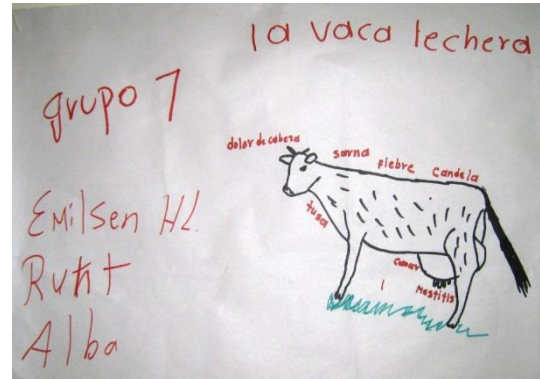 la vaca lechera
grupo 7
Emilsen HL.
Ruht
Alba
dolor de cabeza
sarna
fiebre
Candela
tusa
cancer
Mastitis